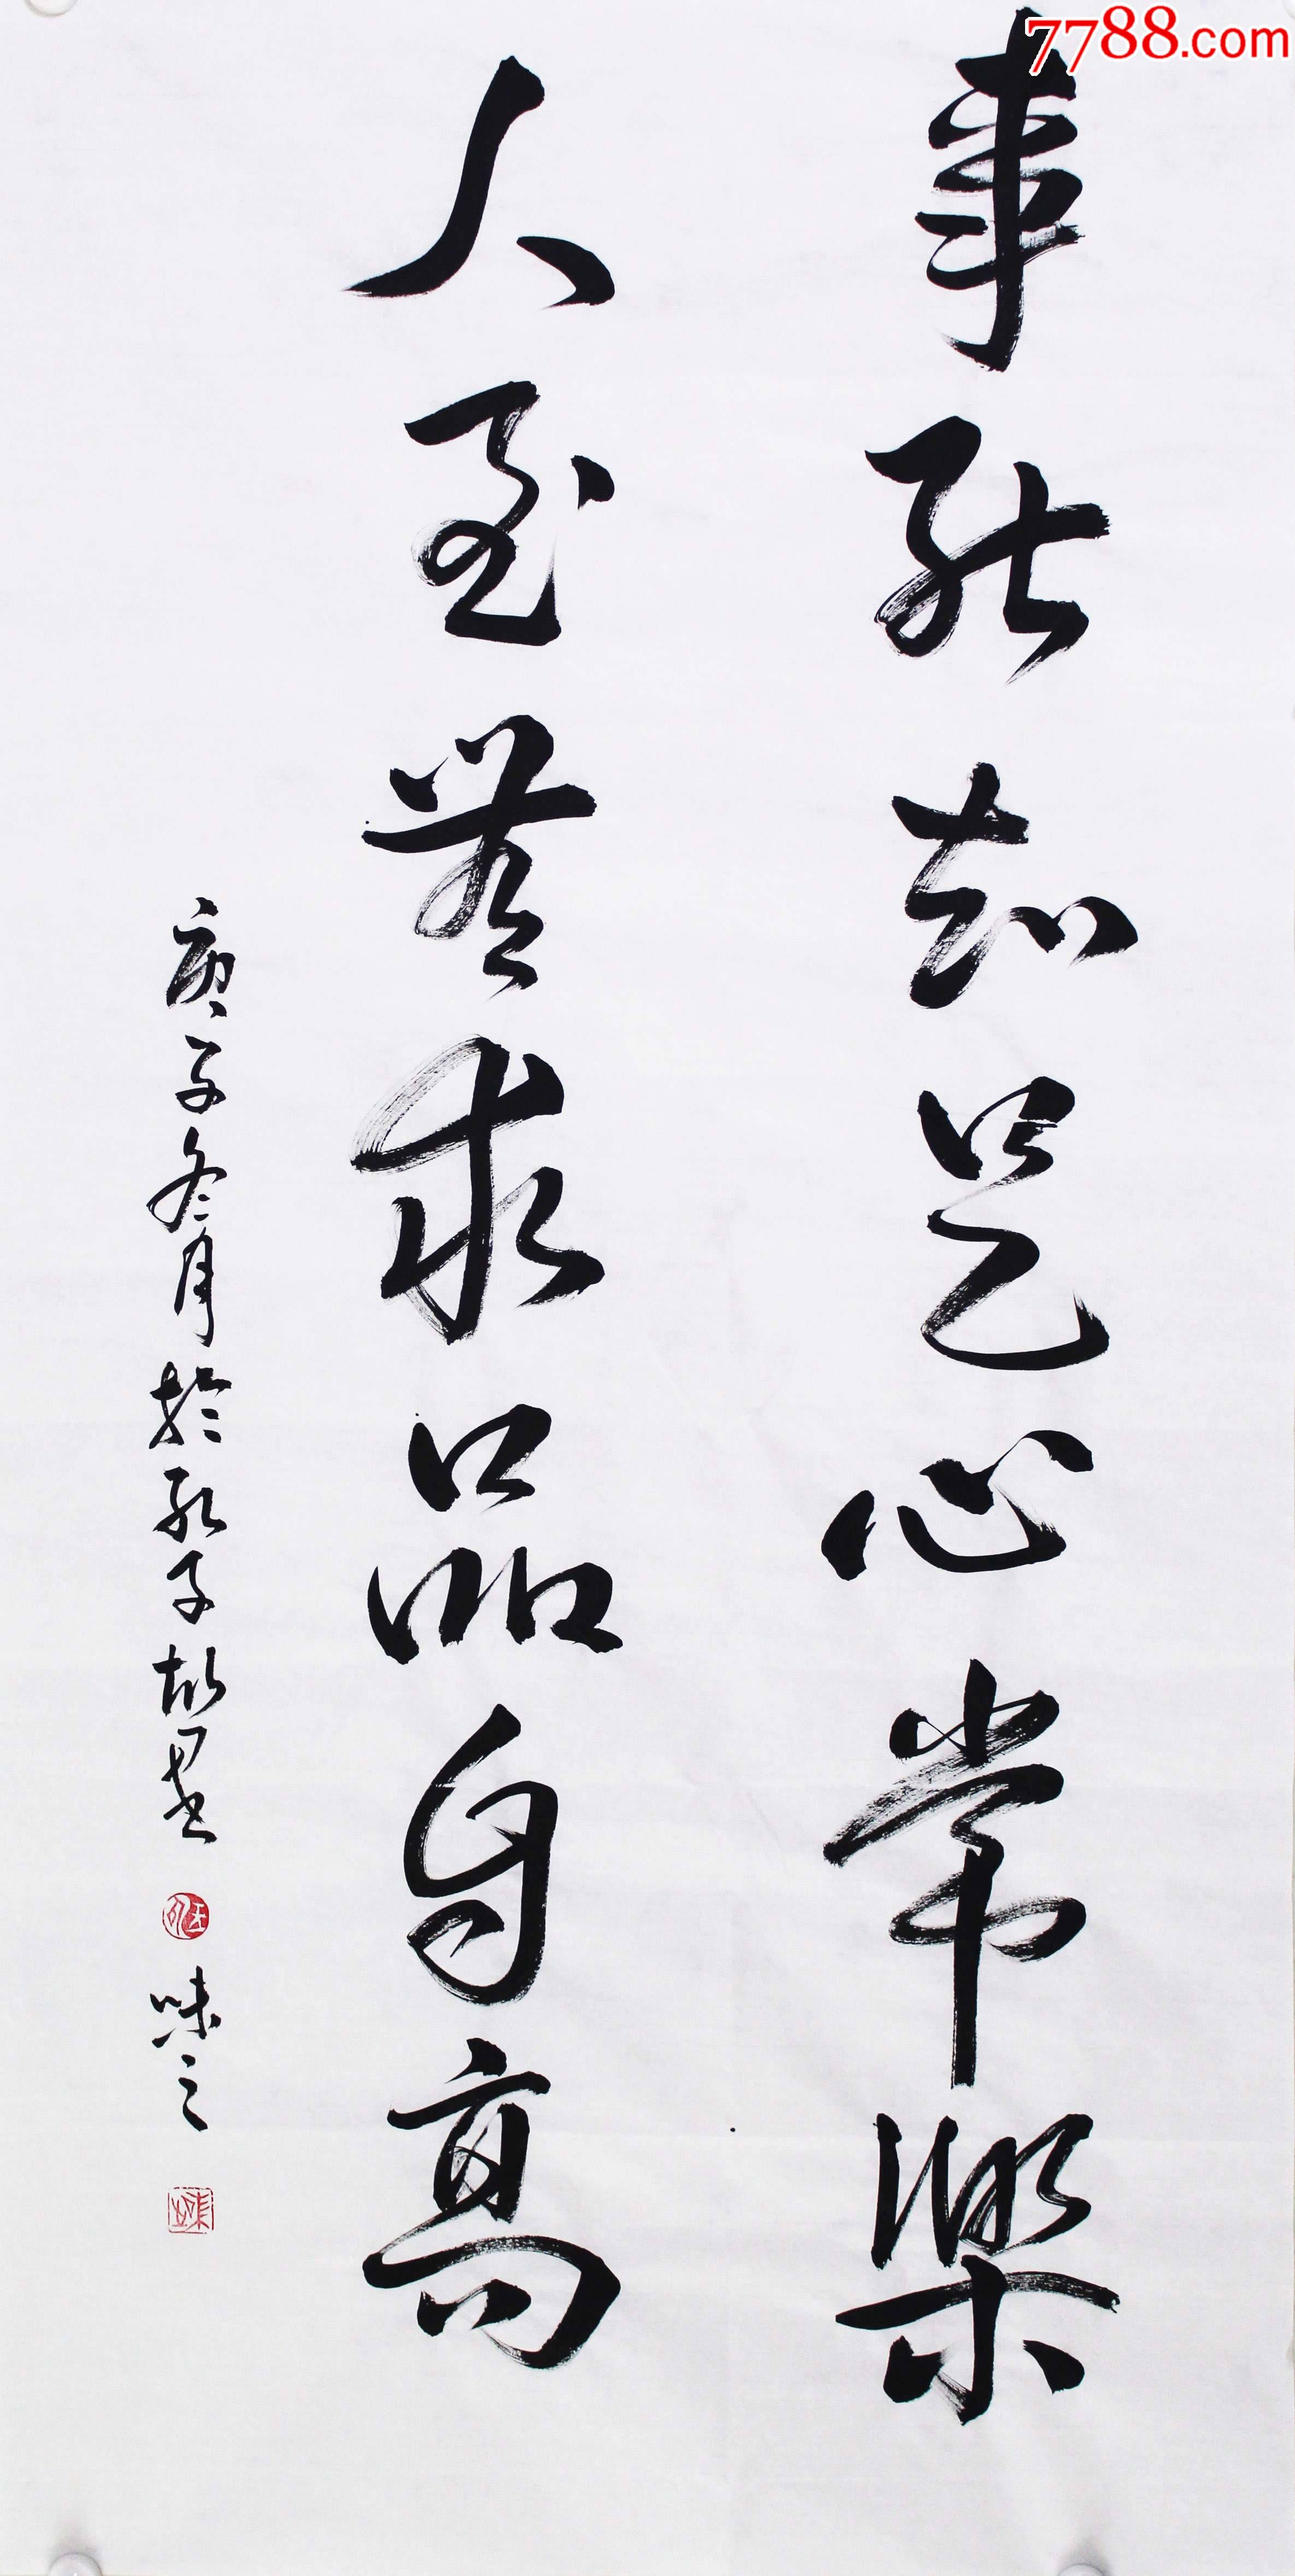 7788.com
事能知足心常樂
人至無求品自高
庚子冬月於孔子故里
味之